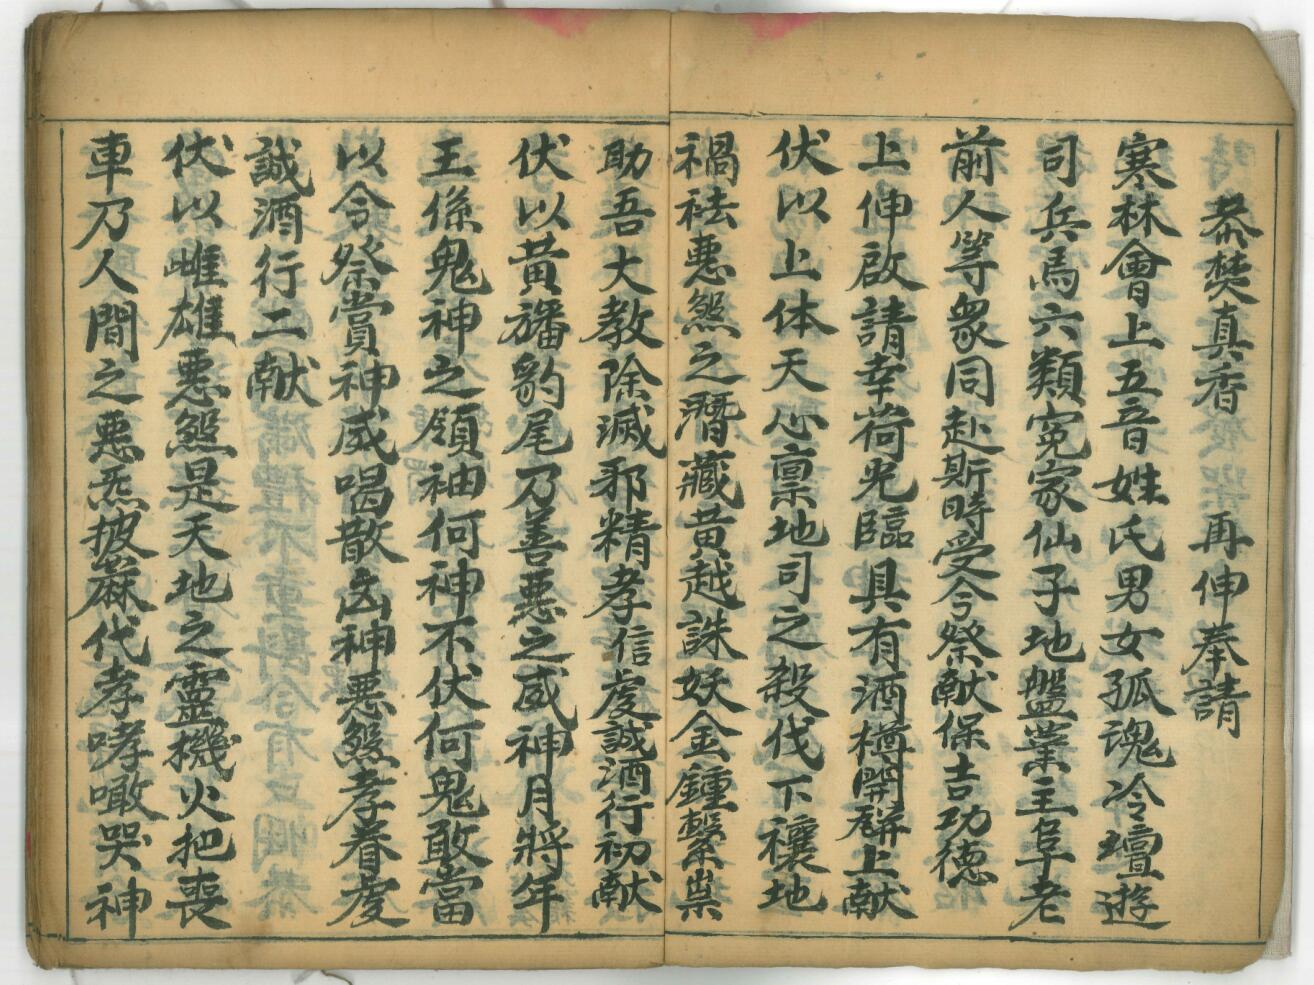 恭焚真香 再伸奉請
寒林會上五音姓氏男女孤魂冷壇遊
司兵馬六類寃家仙子地盤業王阜老
前人等衆同赴斯時受今祭献保吉功徳
上伸啟請幸荷光臨具有酒樽開壜上献
伏以上体天心禀地司之殺伐下禳地
禍祛悪煞之潛藏黄越誅妖金鍾擊祟
助吾大教除滅邪精孝信虔誠酒行初献
伏以黄旛豹尾乃善悪之威神月將年
王係鬼神之領袖何神不伏何鬼敢當
以令祭賞神威喝散凶神悪煞孝眷虔
誠酒行二献
伏以雌雄悪煞是天地之靈機火把喪
車乃人間之悪炁披蔴代孝哮噉哭神